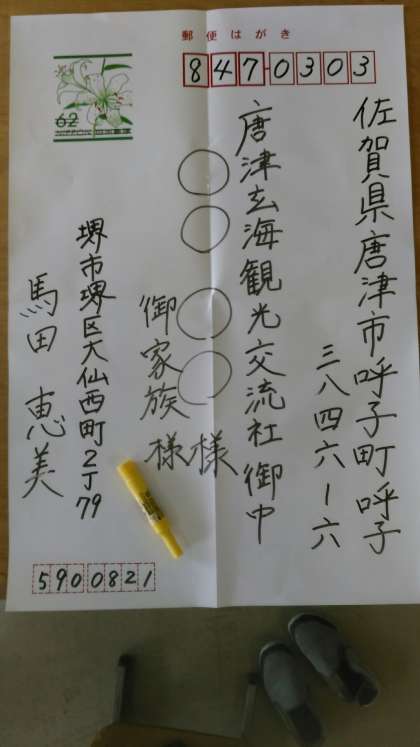 郵便はがき
847-0303
62
佐賀県唐津市呼子町呼子
三八四六ー六
唐津玄海観光交流社御中
〇〇〇〇様
御家族様
堺市堺区大仙西町2丁79
馬田恵美
5900821